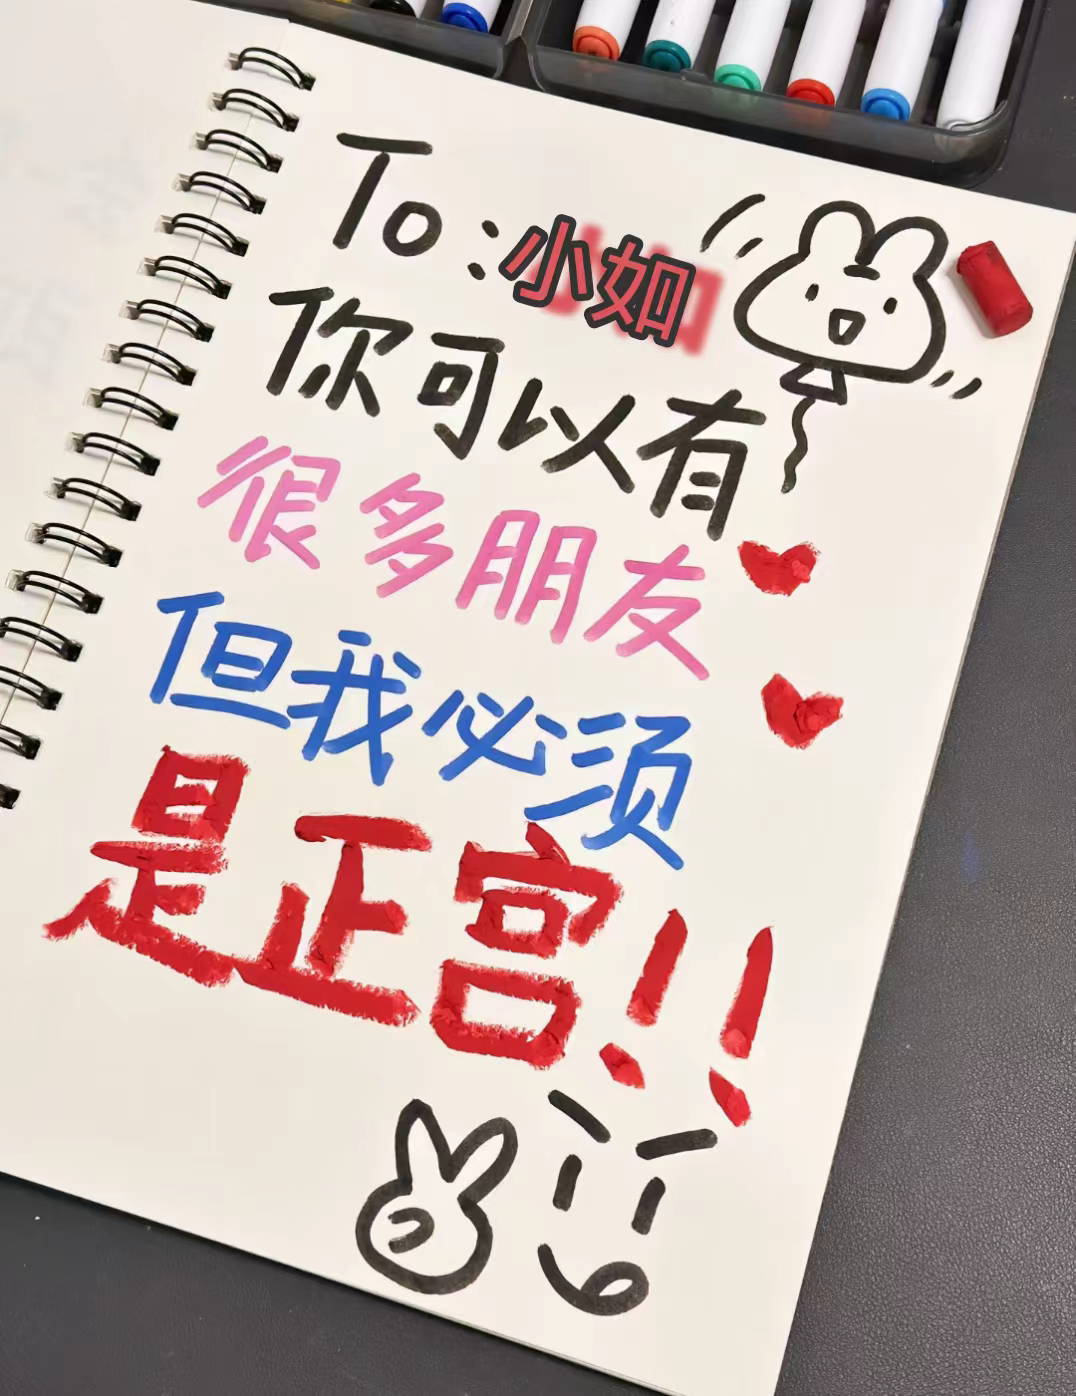 To:小如
你可以有
很多朋友
但我必须
是正宫!!